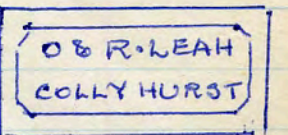 O & R. LEAH
COLLY HURST